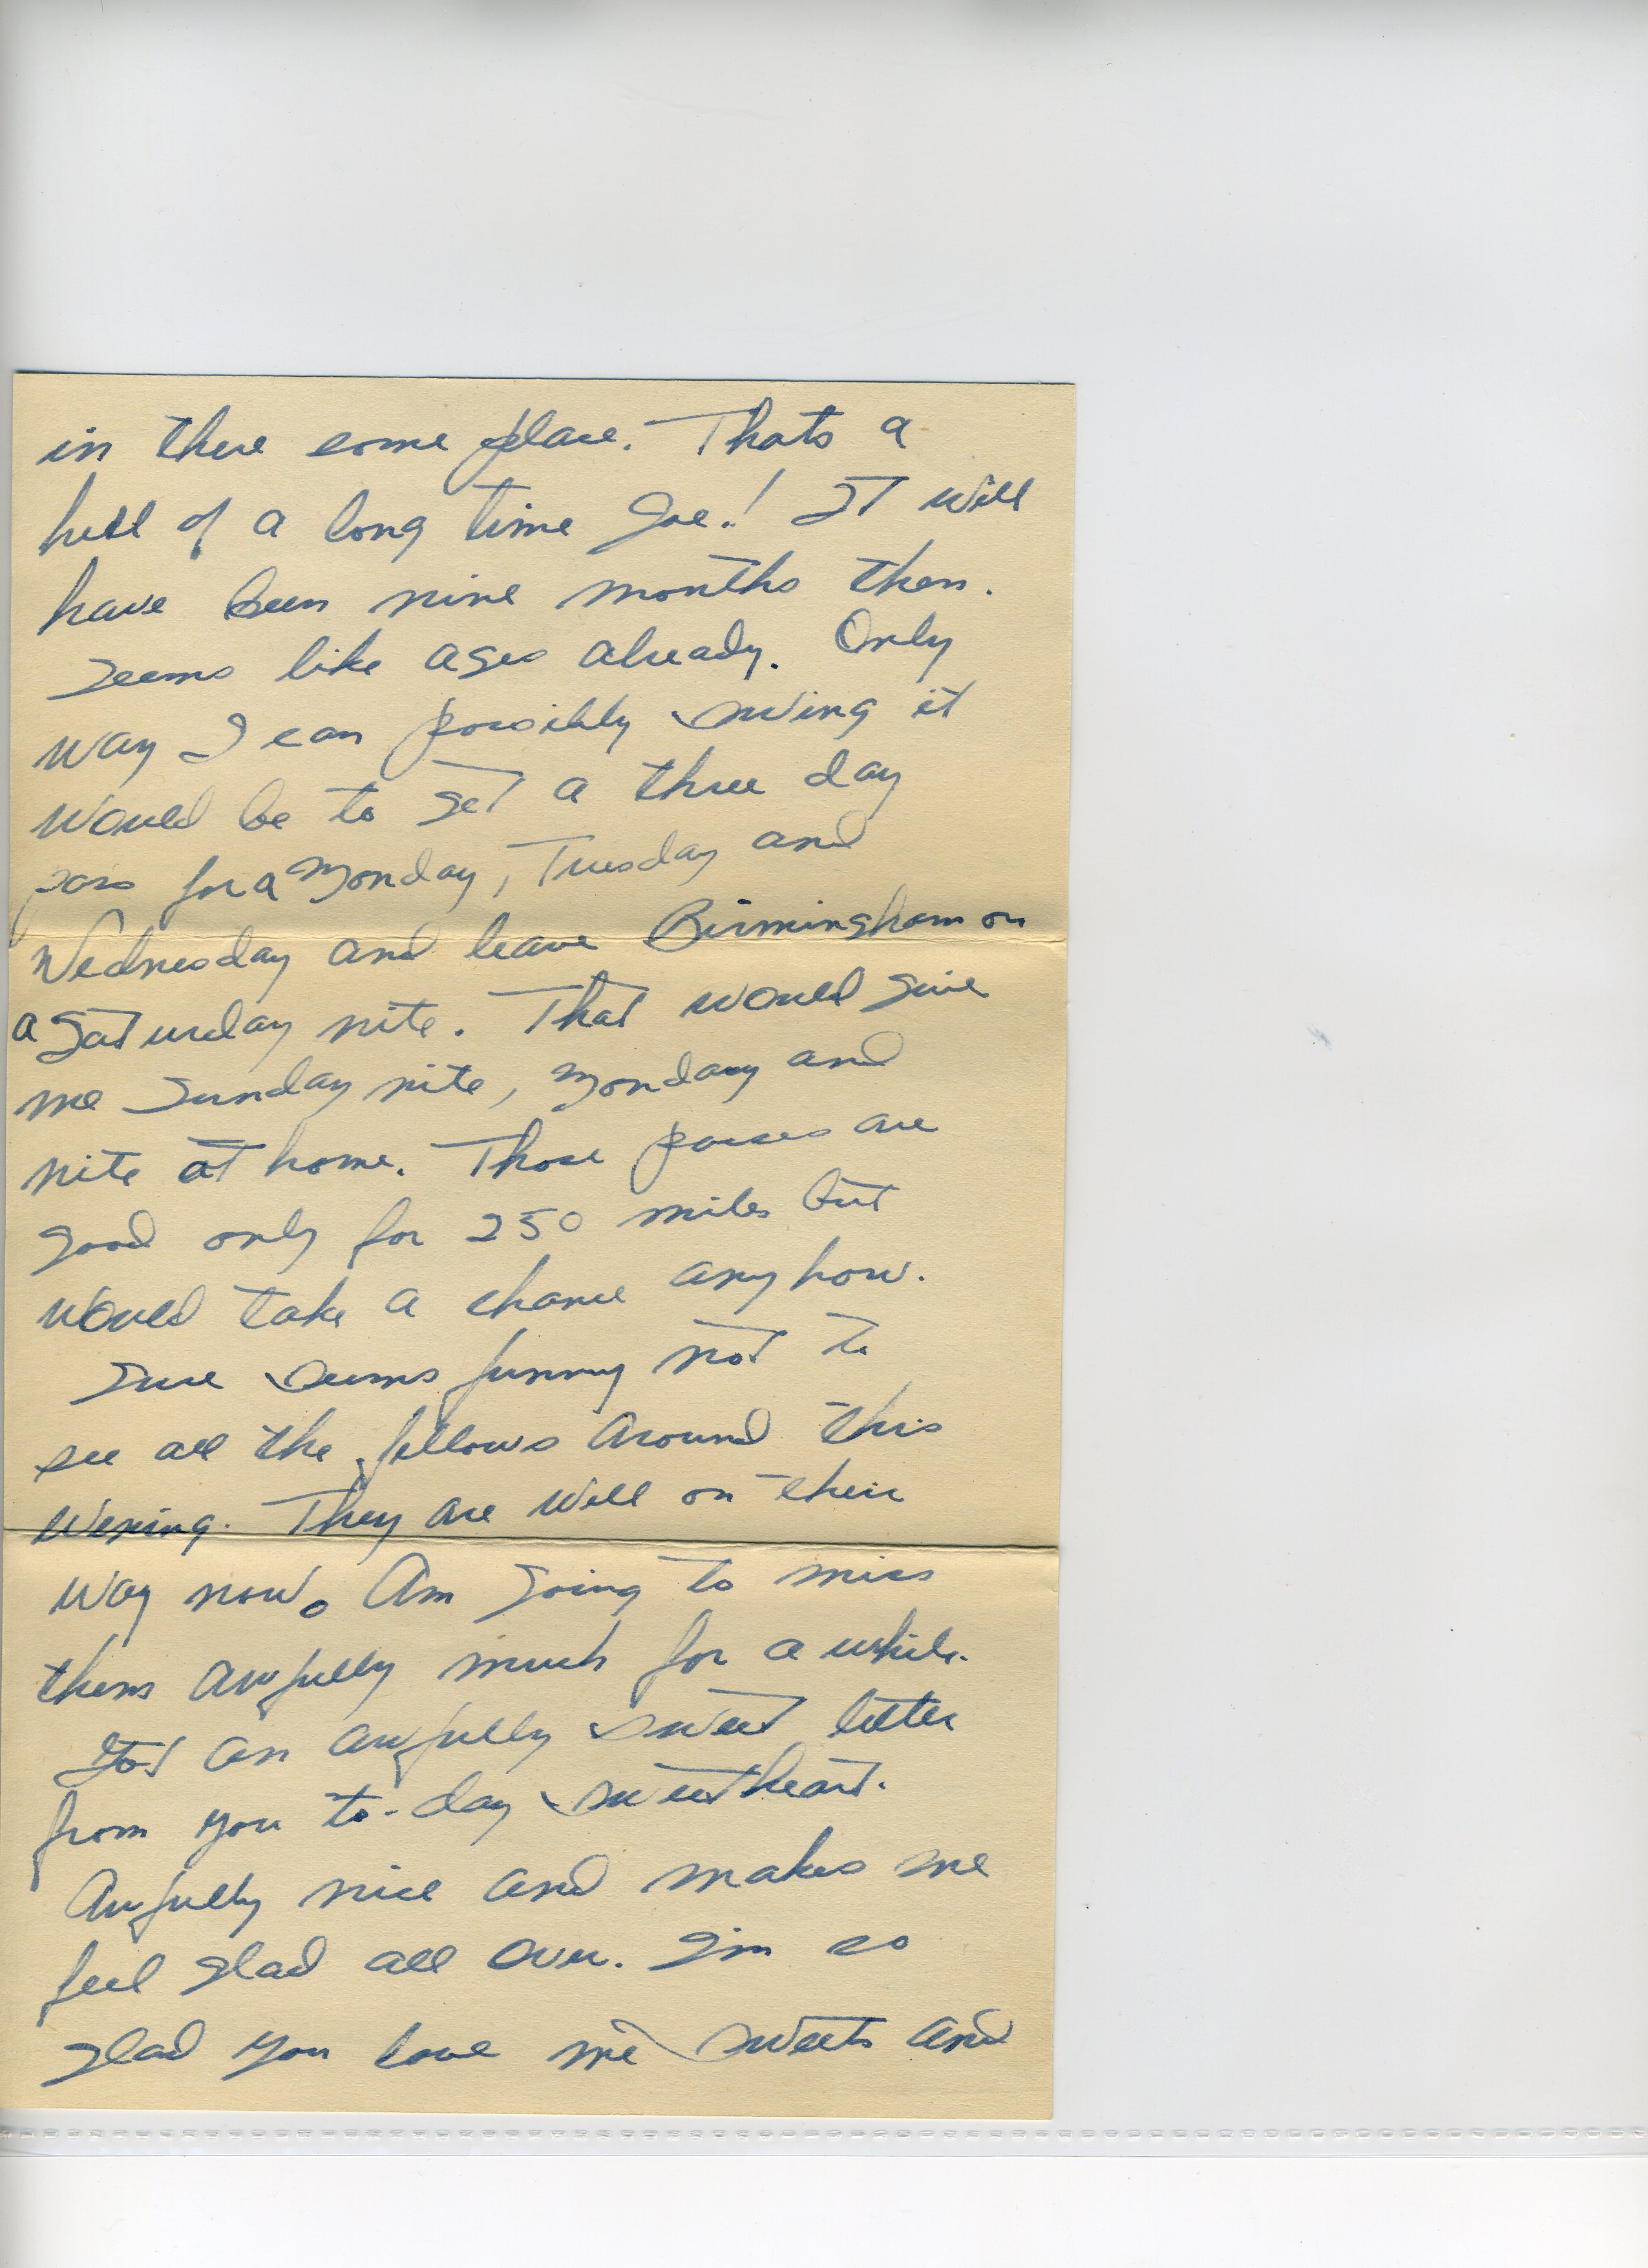 in there some place. Thats a
hell of a long time Joe! It will
have been nine months then.
Seems like ages already. Only
way I can possibly swing it
would be to get a three day
pass for a Monday, Tuesday and
Wednesday and leave Birmingham on
a Saturday nite. That would give
me Sunday nite, Monday and
nite at home. Those passes are
good only for 250 miles but
would take a chance anyhow.
Sure seems funny not to
see all the fellows around this
evening. They are well on their
way now. Am going to miss
them awfully much for a while.
Got an awfully sweet letter
from you to-day sweetheart.
Awfully nice and makes me
feel glad all over. I'm so
glad you love me sweets and